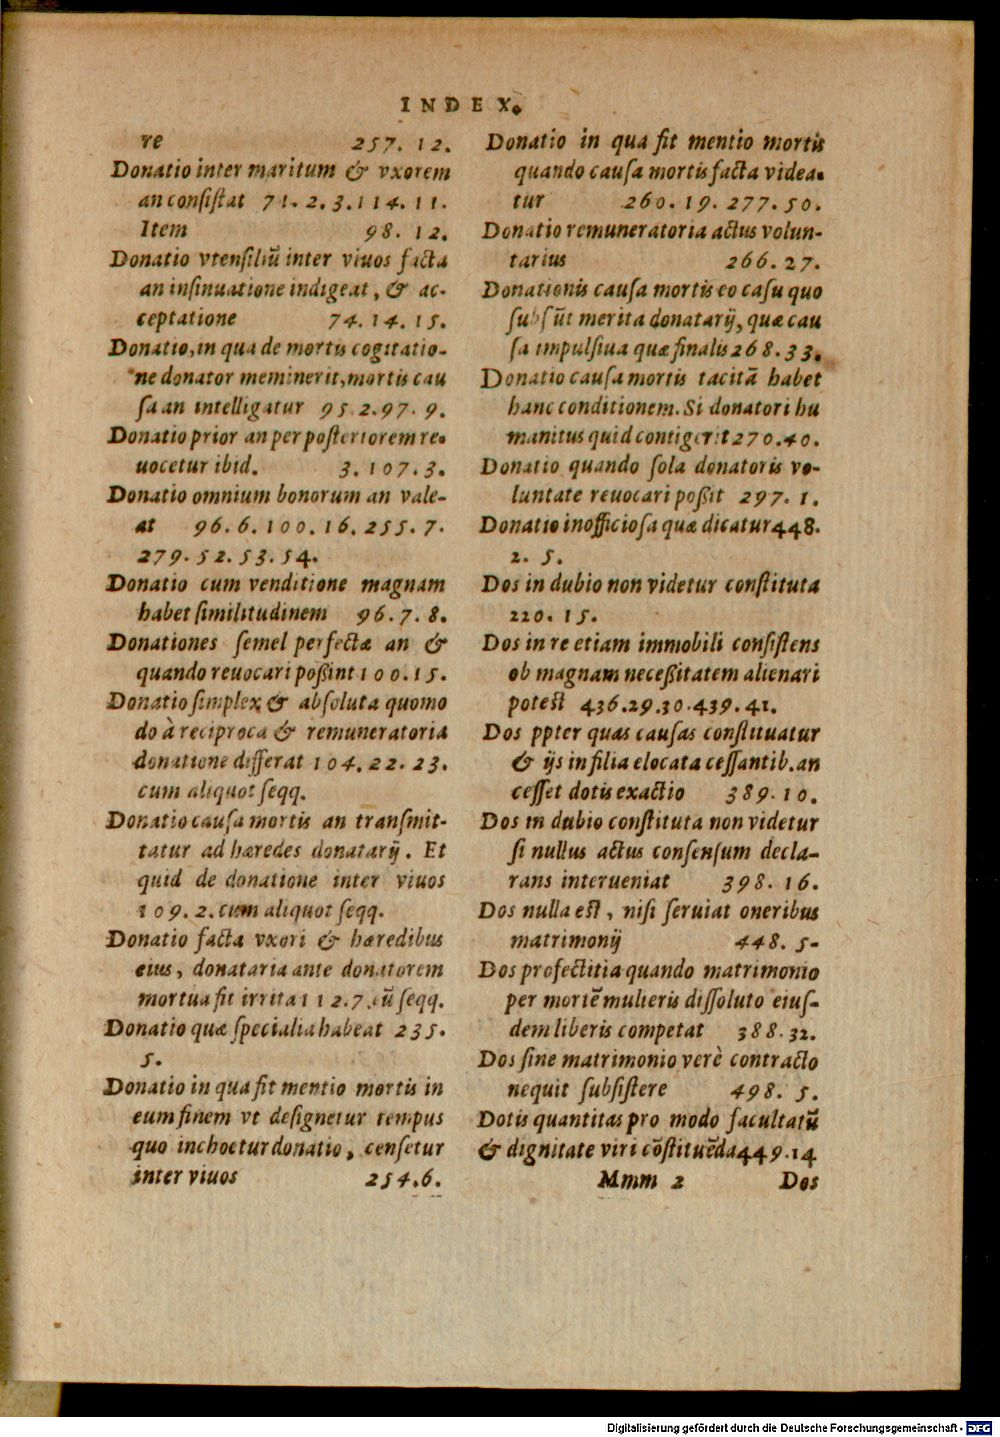 INDEX.
re 257. 12.
Donatio inter maritum & vxorem
an consiſtat 71. 2. 3. 114. 11.
Item 98. 12.
Donatio vtenſiliũ inter viuos facta
an inſinuatione indigeat, & ac-
ceptatione 74. 14. 15.
Donatio, in qua de mortis cogitatio-
ne donator meminerit, mortis cau
ſa an intelligatur 95. 2. 97. 9.
Donatio prior an per poſteriorem re-
uocetur ibid. 3. 107. 3.
Donatio omnium bonorum an vale-
at 96. 6. 100. 16. 255. 7.
279. 52. 53. 54.
Donatio cum venditione magnam
habet ſimilitudinem 96. 7. 8.
Donationes ſemel perfectæ an &
quando reuocari poßint 100. 15.
Donatio ſimplex & abſoluta quomo
do à reciproca & remuneratoria
donatione differat 104. 22. 23.
cum aliquot ſeqq.
Donatio cauſa mortis an tranſmit-
tatur ad hæredes donatarij. Et
quid de donatione inter viuos
109. 2. cum aliquot ſeqq.
Donatio facta vxori & hæredibus
eius, donataria ante donatorem
mortua fit irrita 112. 7. cũ ſeqq.
Donatio quæ ſpecialia habeat 235.
5.
Donatio in qua fit mentio mortis in
eum finem vt deſignetur tempus
quo inchoetur donatio, cenſetur
inter viuos 254. 6.
Donatio in qua fit mentio mortis
quando cauſa mortis facta videa-
tur 260. 19. 277. 50.
Donatio remuneratoria actus volun-
tarius 266. 27.
Donationis cauſa mortis eo caſu quo
ſubſũt merita donatarij, quæ cau
ſa impulſiua quæ finalis 268. 33.
Donatio cauſa mortis tacitã habet
hanc conditionem. Si donatori hu
manitus quid contigerit 270. 40.
Donatio quando ſola donatoris vo-
luntate reuocari poßit 297. 1.
Donatio inofficioſa quæ dicatur 448.
2. 5.
Dos in dubio non videtur conſtituta
220. 15.
Dos in re etiam immobili conſiſtens
ob magnam neceßitatem alienari
poteſt 436. 29. 30. 439. 41.
Dos ppter quas cauſas conſtituatur
& ijs in filia elocata ceſſantib. an
ceſſet dotis exactio 389. 10.
Dos in dubio conſtituta non videtur
ſi nullus actus conſenſum decla-
rans interueniat 398. 16.
Dos nulla eſt, niſi ſeruiat oneribus
matrimonij 448. 5-
Dos profectitia quando matrimonio
per mortẽ mulieris diſſoluto eiuſ-
dem liberis competat 388. 32.
Dos ſine matrimonio verè contracto
nequit ſubſiſtere 498. 5.
Dotis quantitas pro modo facultatũ
& dignitate viri cõſtituẽda 449. 14
Mmm 2 Dos
Digitalisierung gefördert durch die Deutsche Forschungsgemeinschaft - DFG